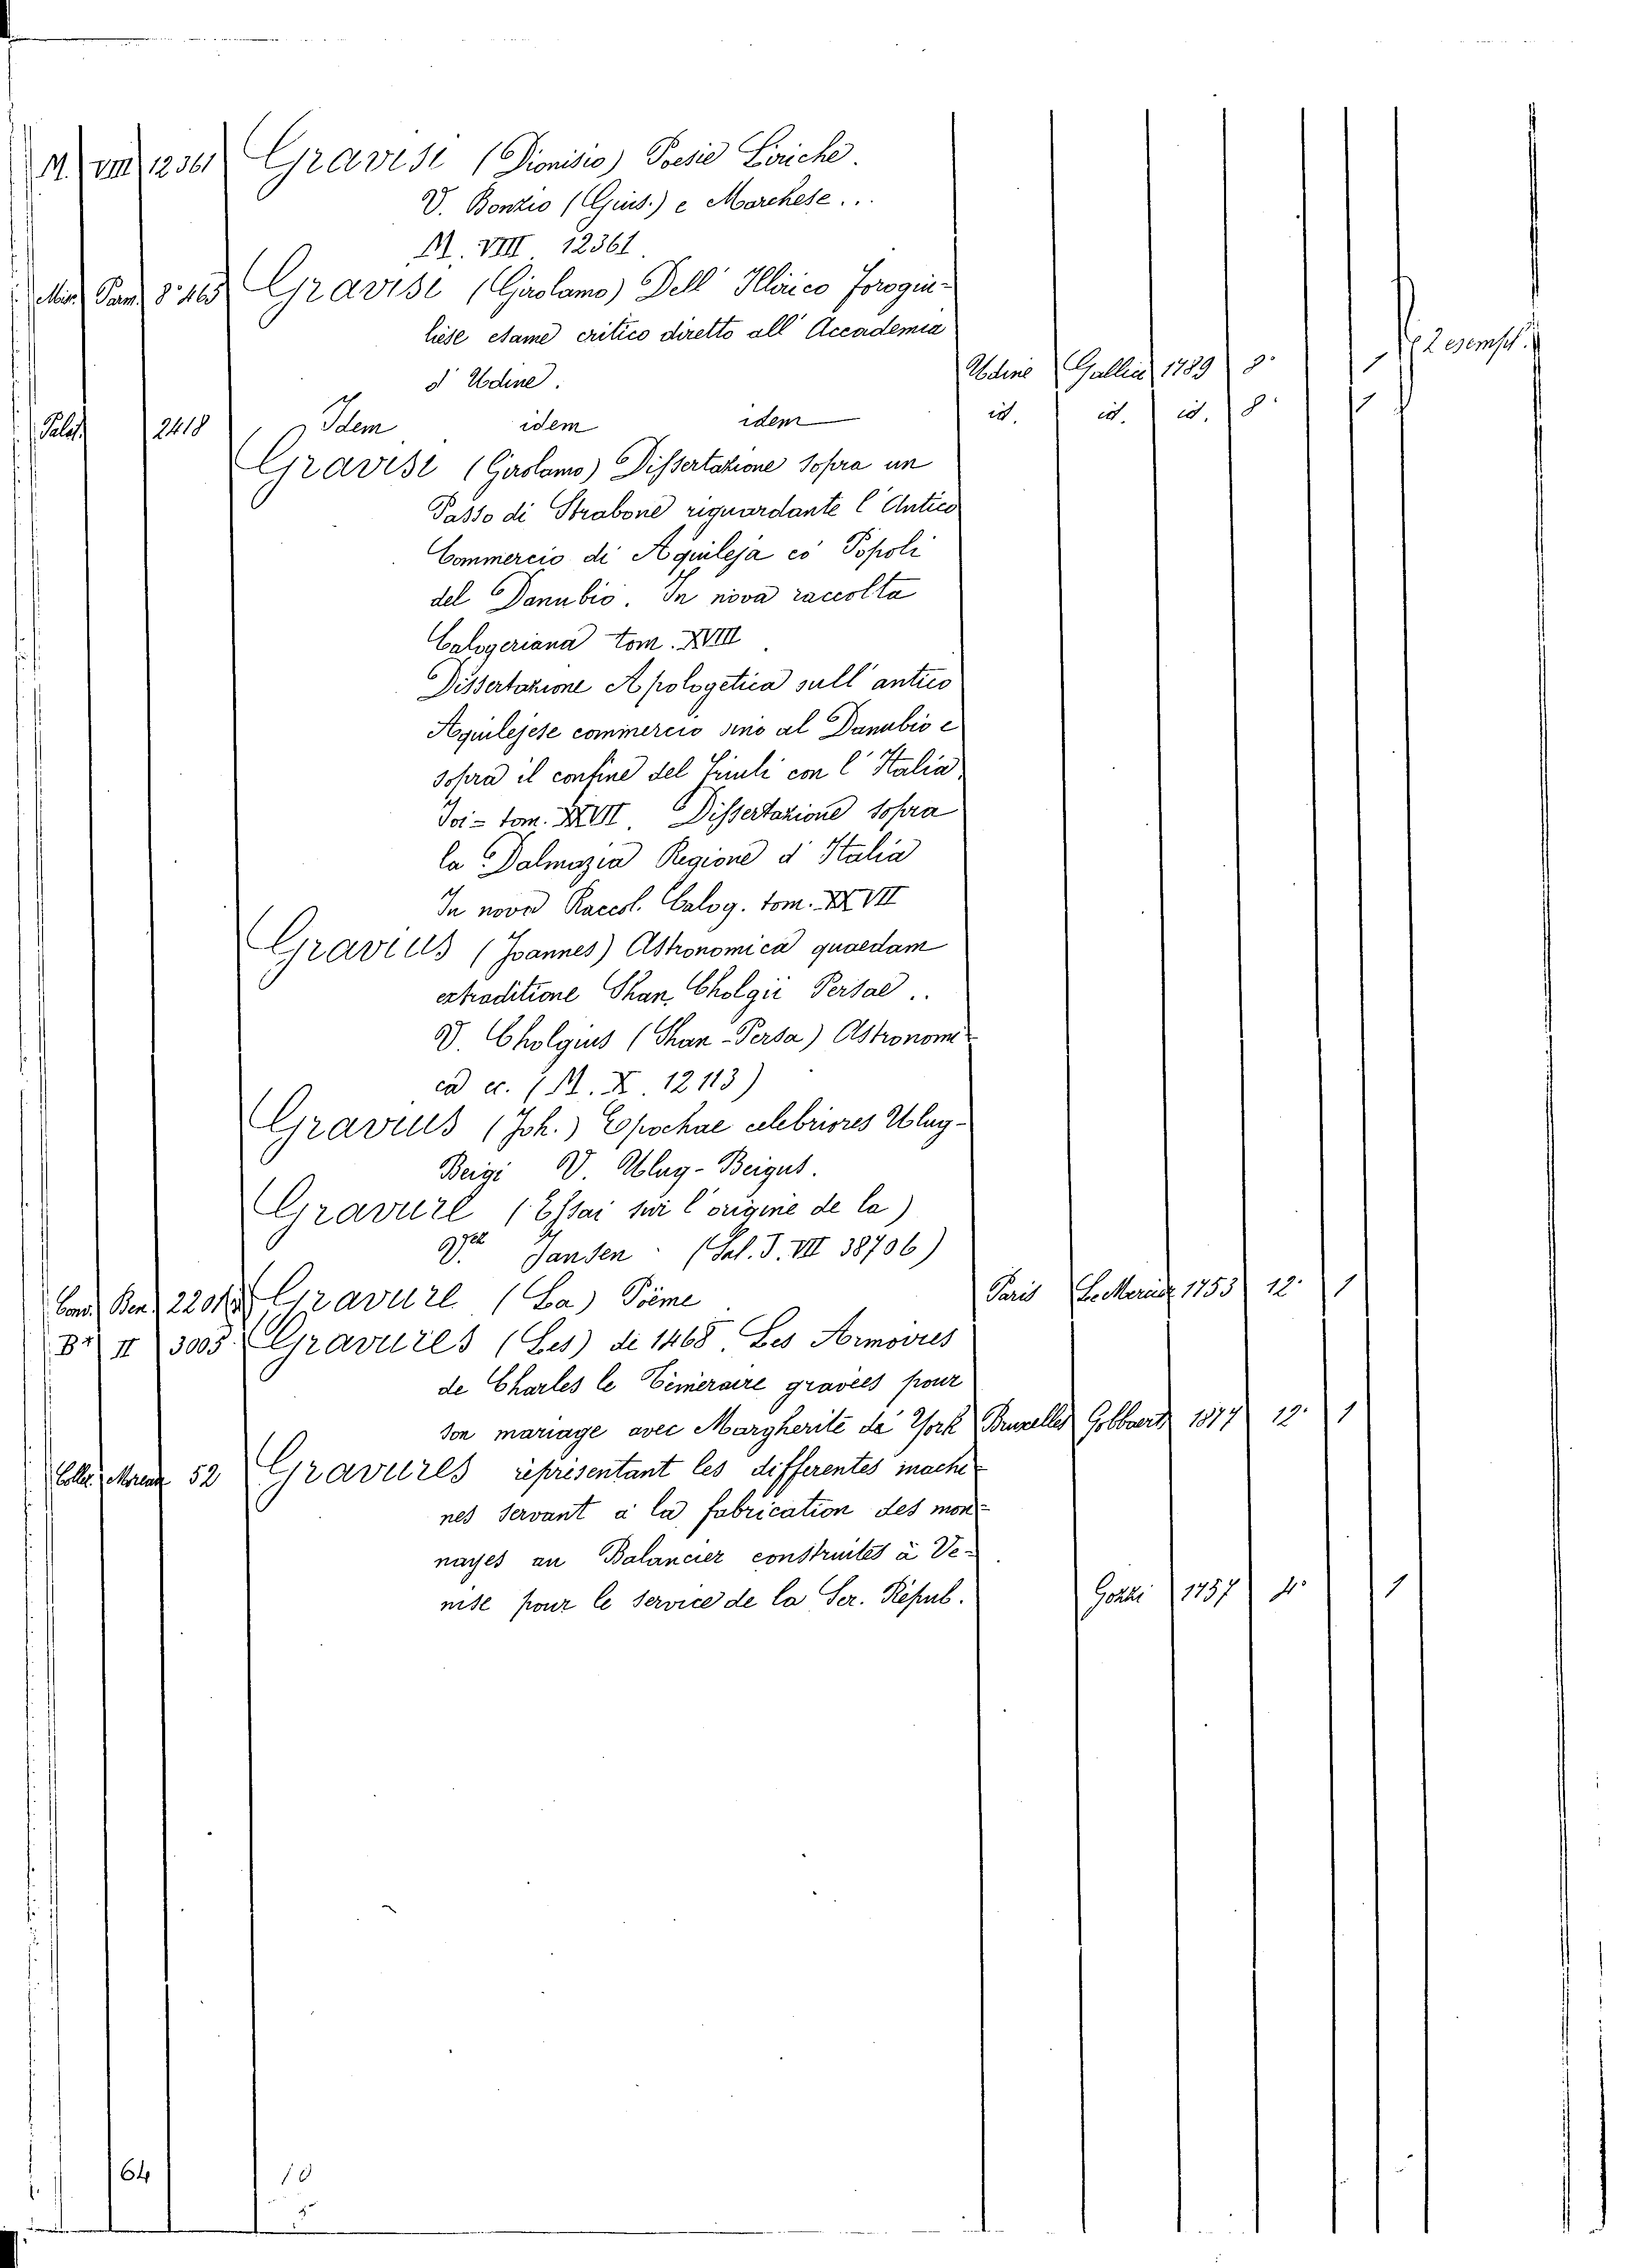 M. VIII 12361 Gravisi (Dionisio) Poesie Liriche.
V. Bonzio (Gius.) e Marchese...
M. VIII 12361.
Misc. Pam. 8° 465 Gravisi (Girolamo) Dell' Illirico forogiu-
liese esame critico diretto all' Accademia
d' Udine. Udine Gallici 1789 8° 1 2 esempl.
Palat. 2418 Idem idem idem id. id. id. 8° 1
Gravisi (Girolamo) Dissertazione sopra un
Passo di Strabone riguardante l' Antico
Commercio di Aquileja co' Popoli
del Danubio. In nova raccolta
Calogeriana tom. XVIII
Dissertazione Apologetica sull' antico
Aquilejese commercio sino al Danubio e
sopra il confine del Friuli con l' Italia
Ivi - tom. XXVII. Dissertazione sopra
la Dalmazia Regione d' Italia
In nova Raccol. Calog. tom. XXVII
Gravius (Joannes) Astronomica quaedam
extraditione Shan Cholgii Persae..
V. Cholgius (Shan-Persa) Astronomi-
ca ec. (M. X. 12113)
Gravius (Joh.) Epochae celebriores Ulug-
Beigi V. Ulug-Beigus.
Gravure (Essai sur l' origine de la)
V. Jansen (Sal. T. VII 38706)
Cons. Ben. Gravure (La) Poëme Paris Le Mercier 1753 12° 1
Br. II 3005 Gravures (Les) de 1468. Les Armoires
de Charles le Témeraire gravées pour
son mariage avec Margherite de York Bruxelles Gobbaerts 1877 12° 1
Collez. 52 Gravures représentant les differentes machi-
nes servant à la fabrication des mon-
nayes au Balancier construites à Ve-
nise pour le service de la Ser. Répub. Gozzi 1757 4° 1
64 10
5